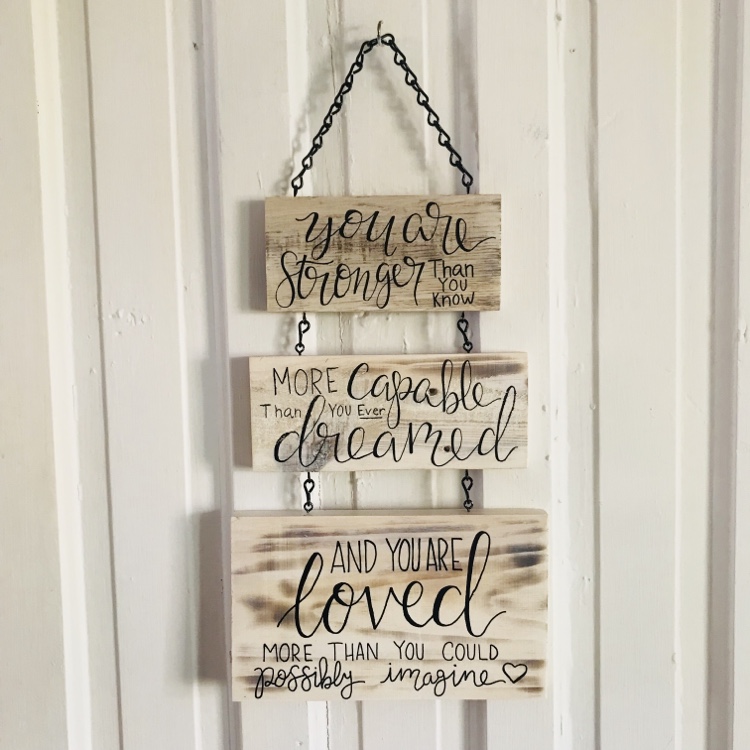 you are
Stronger Than
You
Know
MORE Capable
Than You Ever
dreamed
AND YOU ARE
loved
MORE THAN YOU COULD
possibly imagine♡